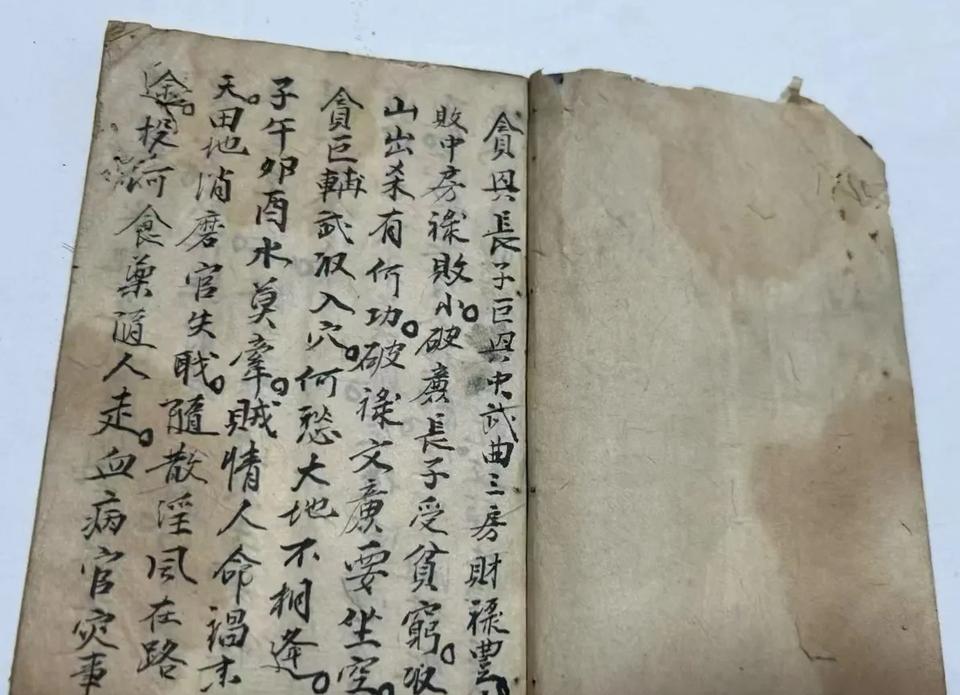 貪與長子巨與中武曲三房財祿豐
敗中房祿敗小。破廉長子受貧窮。収
山出杀有何功。破祿文廉要坐空。
貪巨輔武収入穴。何愁大地不相逢。
子午卯酉水莫牽。賊情人命禍
天。田地消磨官失職。隨散淫風在路
途。投河食藥隨人走。血病官灾事